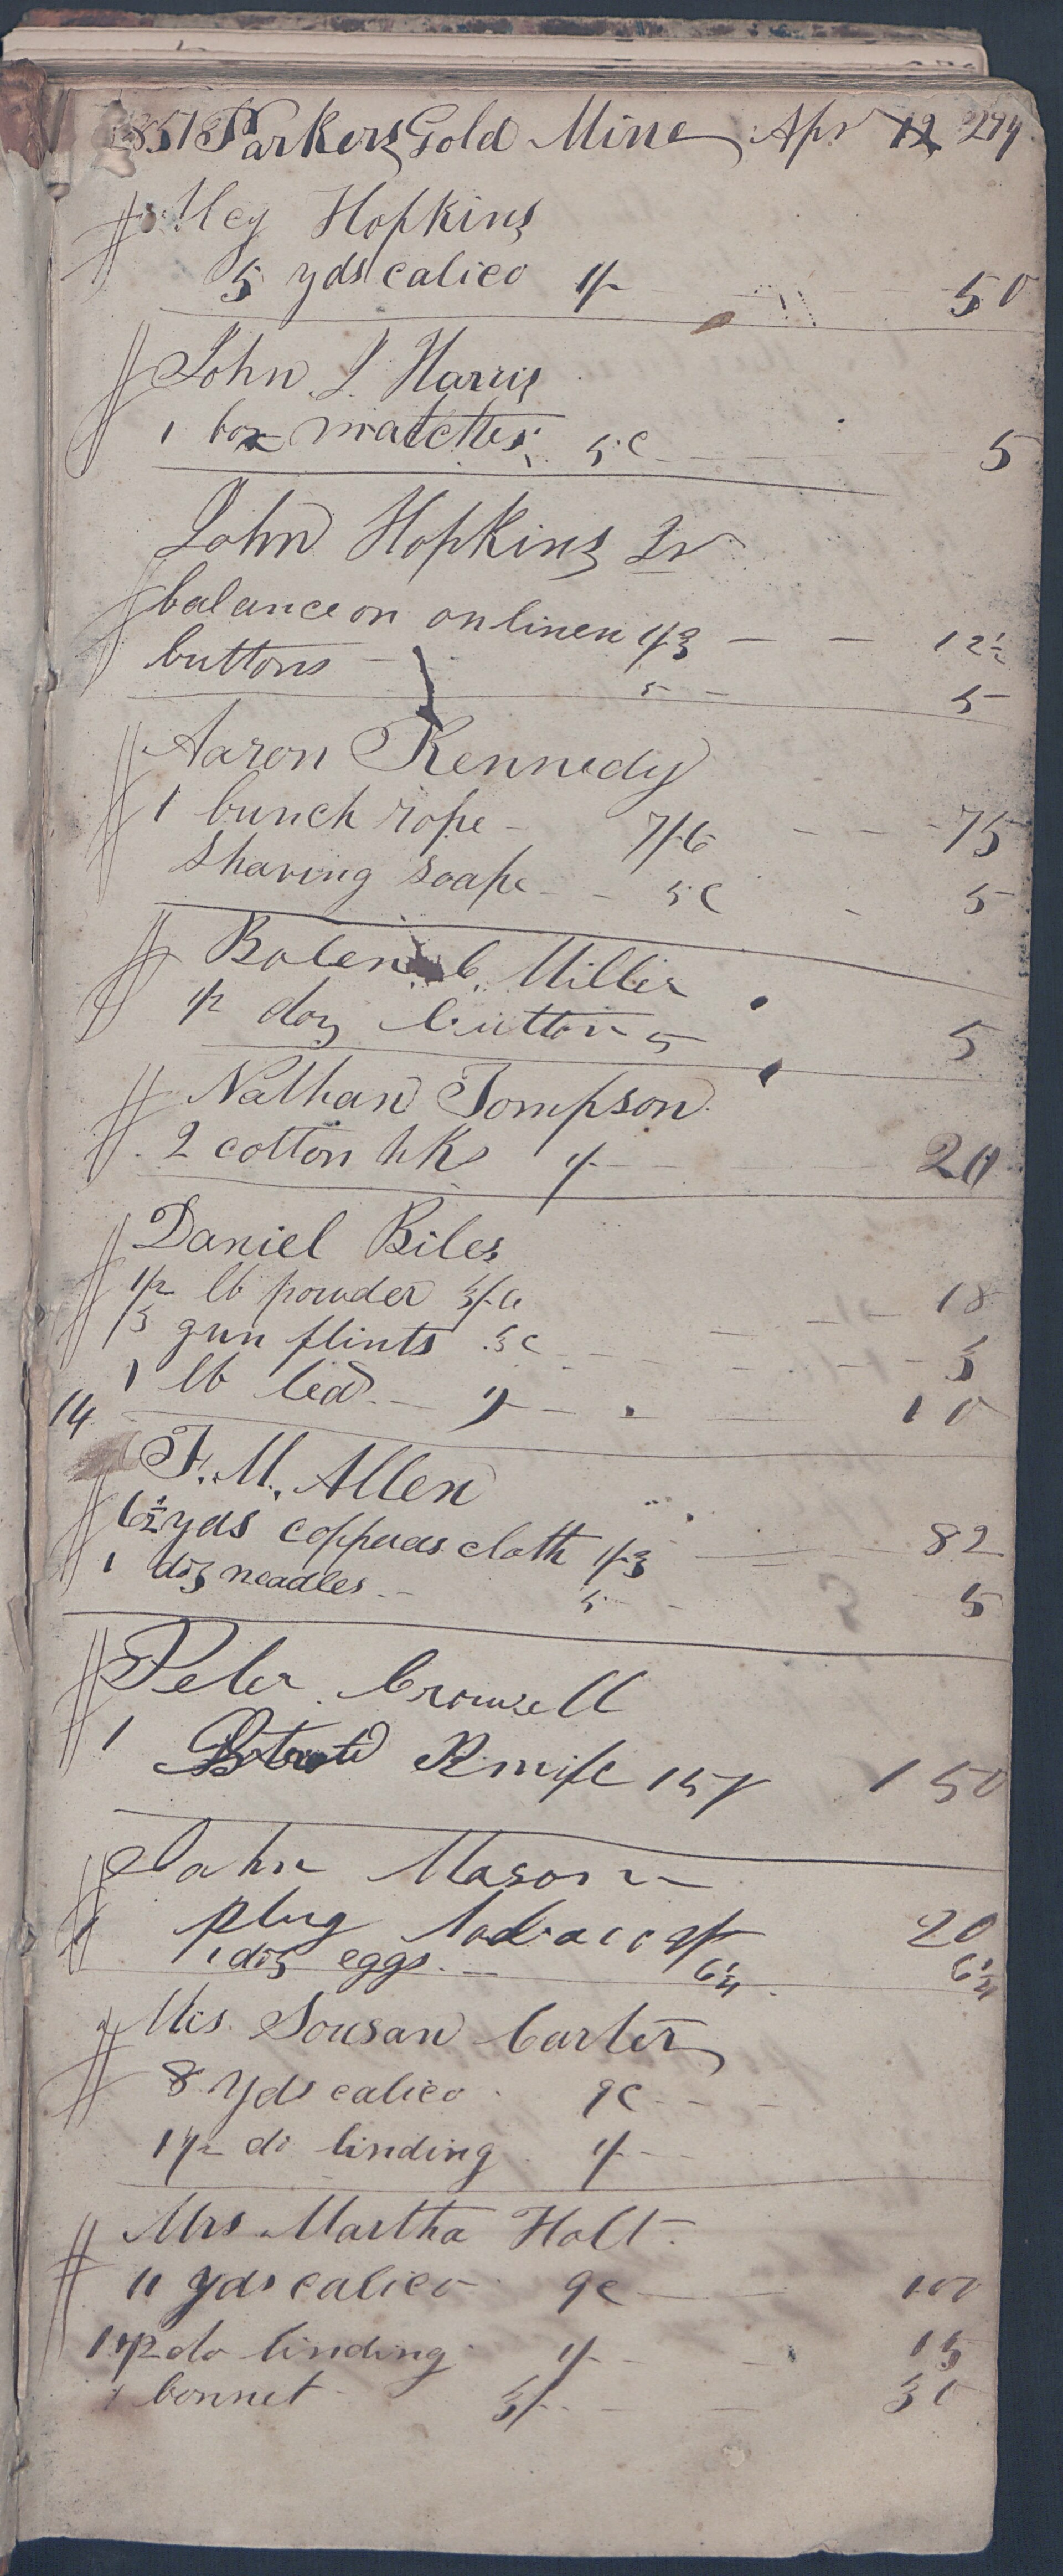 1851 Parkers Gold Mine Apr 12 294
Hopkins
5 yds calico 1/- 50
John I Harris
1 box matches 5c 5
John Hopkins Jr
balance on on linen 1/3 12½
buttons 5 5
Aaron Kennedy
1 bunch rope 7/6 75
Shaving soape 5c 5
Miller
1/2 doz button 5 5
Nathan Tompson
2 cotton hks 1/- 20
Daniel Biles
1/2 lb powder 3/6 18
3 gun flints 5c 5
1 lb led 1/- 10
14
F. M. Allen
6½ yds copperas cloth 1/3 82
1 doz neadles 5 5
Peter Crowell
1 Knife 15/ 1 50
John Mason
1 plug tobacco 2/- 20
1 doz eggs 6¼ 6¼
Mis Sousan Carter
8 yds calico 9c
1 1/2 do binding 1/-
Mrs Martha Holt
11 yds calico 9c 100
1 1/2 do binding 1/- 15
1 bonnet 3/- 30